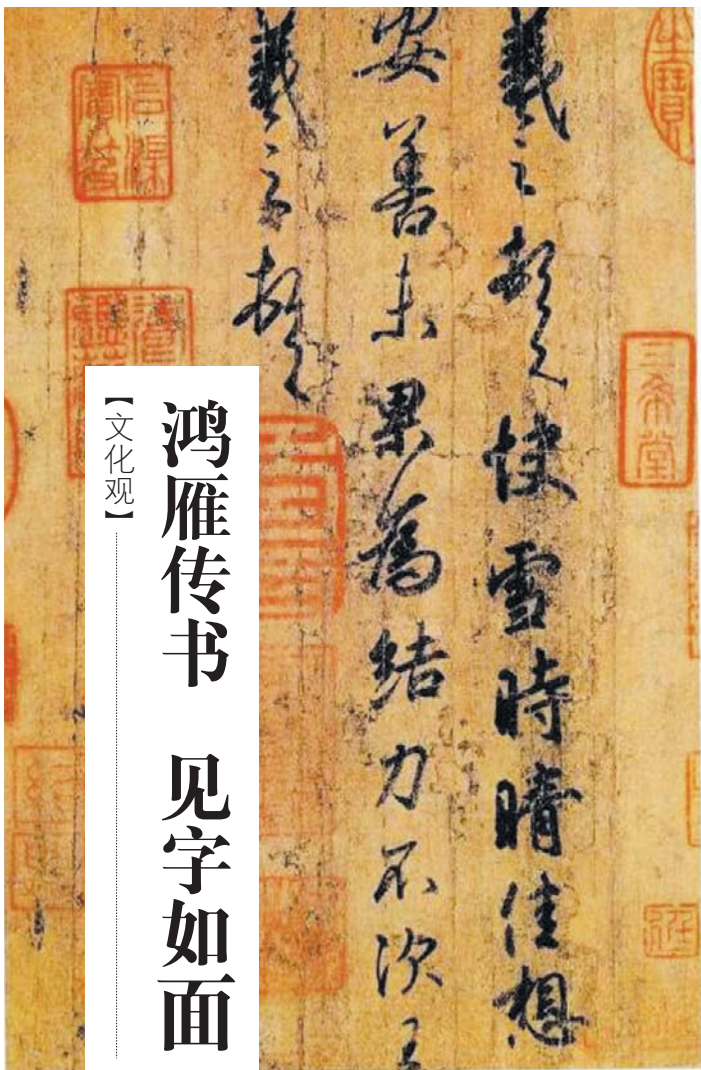 羲之頓首快雪時晴佳想
安善未果為結力不次王
羲之頓首
三希堂
【文化观】
鸿雁传书 见字如面